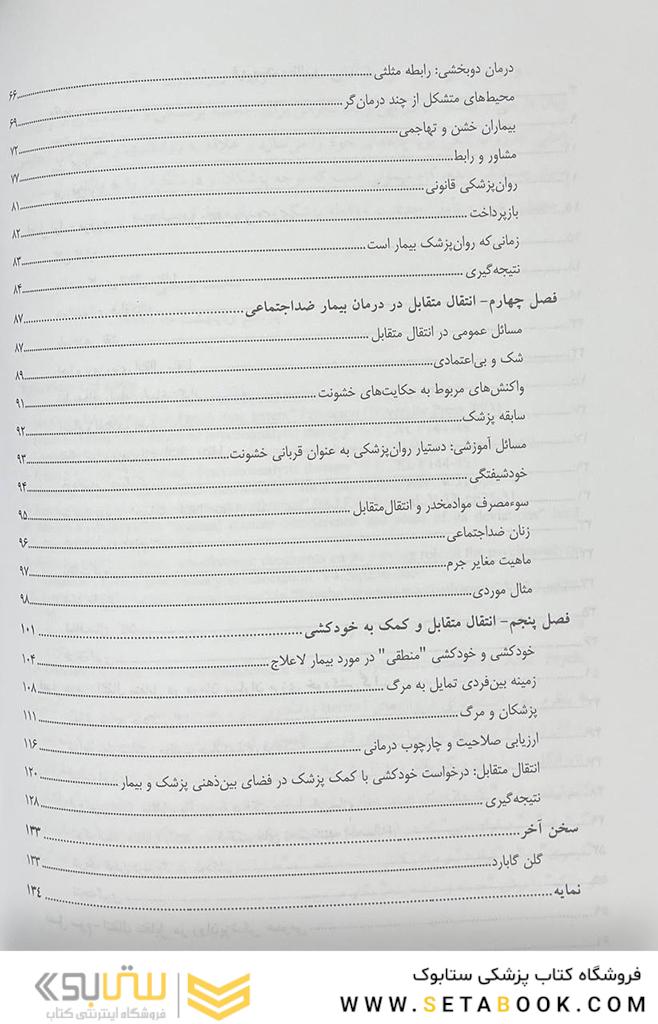 درمان دوبخشی: رابطه مثلثی ........ ۶۶
محیط‌های متشکل از چند درمان‌گر ........ ۶۹
بیماران خشن و تهاجمی ........ ۷۲
مشاور و رابط ........ ۷۷
روان‌پزشکی قانونی ........ ۸۱
بازپرداخت ........ ۸۲
زمانی‌که روان‌پزشک بیمار است ........ ۸۳
نتیجه‌گیری ........ ۸۴
فصل چهارم- انتقال متقابل در درمان بیمار ضداجتماعی ........ ۸۷
مسائل عمومی در انتقال متقابل ........ ۸۷
شک و بی‌اعتمادی ........ ۸۹
واکنش‌های مربوط به حکایت‌های خشونت ........ ۹۱
سابقه پزشک ........ ۹۲
مسائل آموزشی: دستیار روان‌پزشکی به عنوان قربانی خشونت ........ ۹۳
خودشیفتگی ........ ۹۴
سوءمصرف موادمخدر و انتقال‌متقابل ........ ۹۵
زنان ضداجتماعی ........ ۹۶
ماهیت مغایر جرم ........ ۹۷
مثال موردی ........ ۹۸
فصل پنجم- انتقال متقابل و کمک به خودکشی ........ ۱۰۱
خودکشی و خودکشی "منطقی" در مورد بیمار لاعلاج ........ ۱۰۴
زمینه بین‌فردی تمایل به مرگ ........ ۱۰۸
پزشکان و مرگ ........ ۱۱۱
ارزیابی صلاحیت و چارچوب درمانی ........ ۱۱۶
انتقال متقابل: درخواست خودکشی با کمک پزشک در فضای بین‌ذهنی پزشک و بیمار ........ ۱۲۰
نتیجه‌گیری ........ ۱۲۸
سخن آخر ........ ۱۳۳
گلن گابارد ........ ۱۳۳
نمایه ........ ۱۳۴
فروشگاه کتاب پزشکی ستابوک
WWW.SETABOOK.COM
ستابوک
فروشگاه اینترنتی کتاب